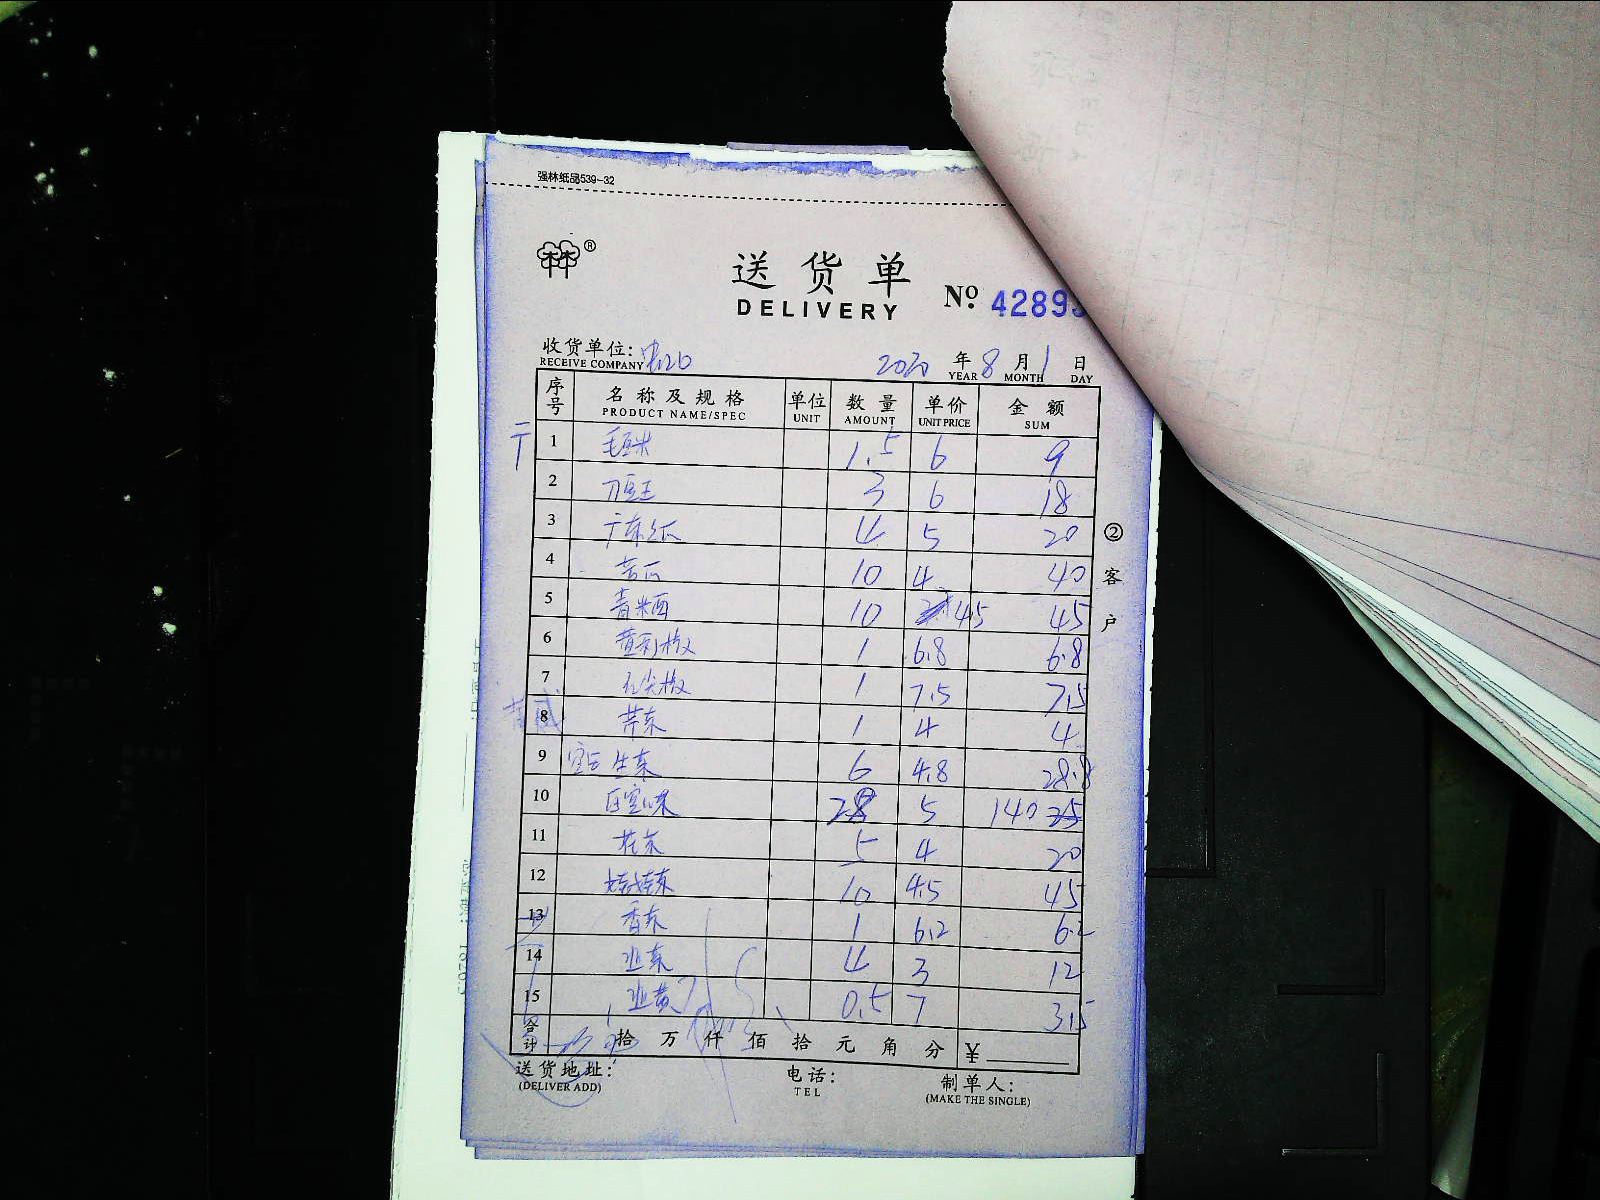 强林纸品539-32
林®
送货单
DELIVERY
No. 4289
收货单位:
RECEIVE COMPANY
2020 年 8 月 1 日
YEAR MONTH DAY
序号 名称及规格 单位 数量 单价 金额
PRODUCT NAME/SPEC UNIT AMOUNT UNIT PRICE SUM
1 毛豆米 1.5 6 9
2 刀豆王 3 6 18
3 广东丝瓜 4 5 20
4 苦瓜 10 4 40
5 10 4.5 45
6 1 6.8 6.8
7 尖椒 1 7.5 7.5
8 芹东 1 4 4
9 生东 6 4.8 28.8
10 28 5 140
11 花东 5 4 20
12 娃娃东 10 4.5 45
13 香东 1 6.2 6.2
14 业东 4 3 12
15 业黄 0.5 7 3.5
合计 拾 万 仟 佰 拾 元 角 分 ¥
送货地址:
(DELIVER ADD)
电话:
TEL
制单人:
(MAKE THE SINGLE)
②客户